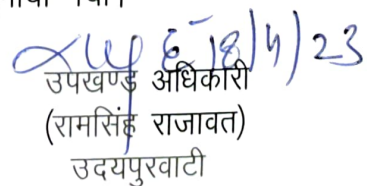 18/4/23
उपखण्ड अधिकारी
(रामसिंह राजावत)
उदयपुरवाटी